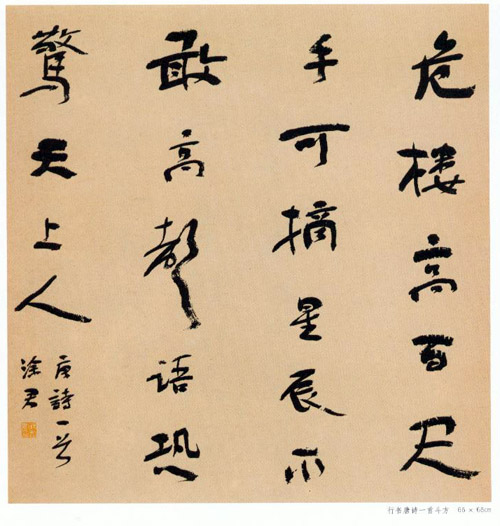 危楼高百尺
手可摘星辰不
敢高聲語恐
驚天上人
唐詩一首
涂君
行书唐诗一首斗方 66×66cm